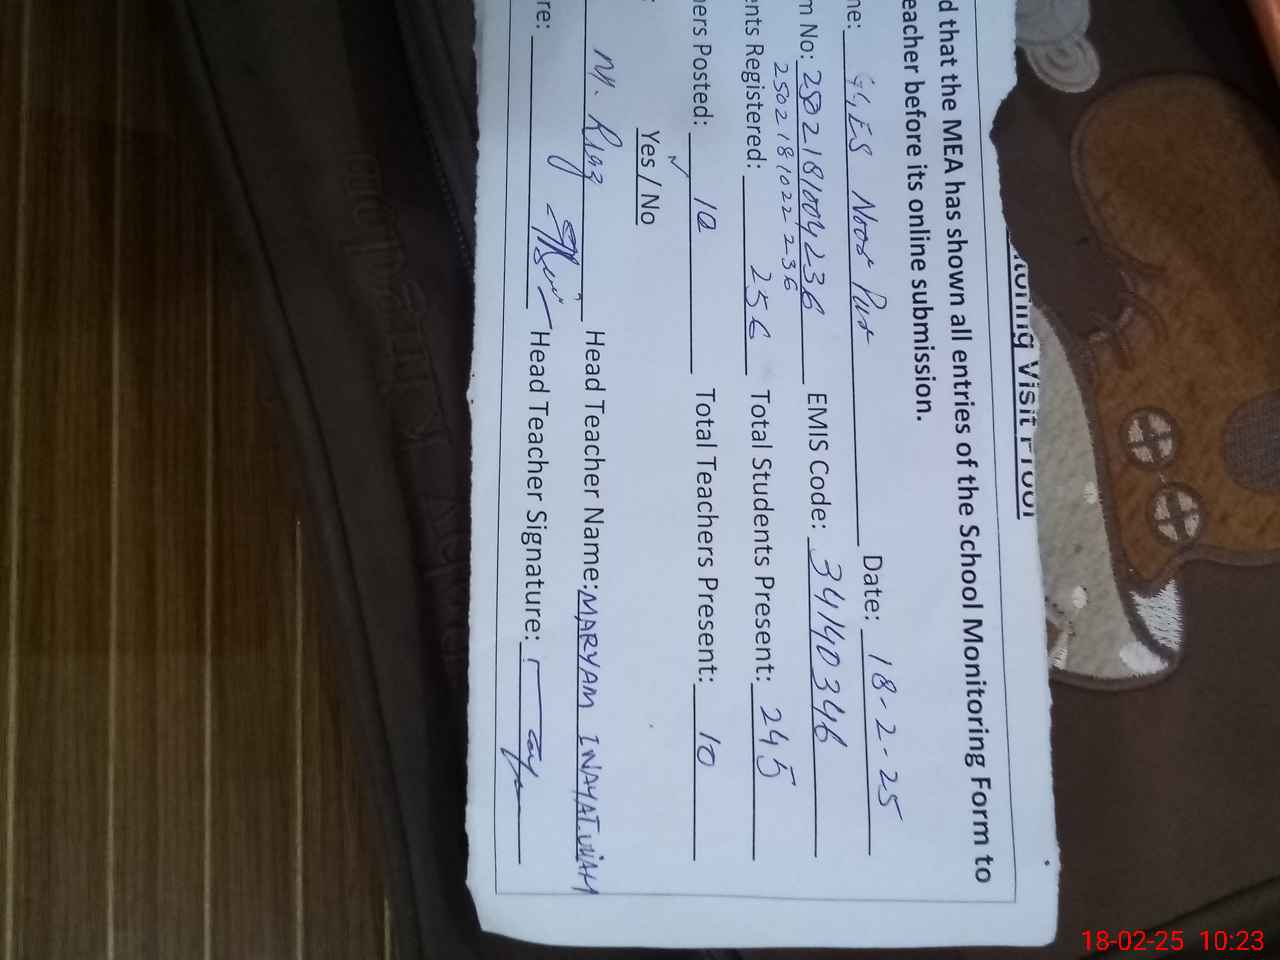 oring Visit Proof
d that the MEA has shown all entries of the School Monitoring Form to
eacher before its online submission.
ne: GGES Noor Pur Date: 18-2-25
m No: 2502181004236 EMIS Code: 34140346
2502181022236
ents Registered: 256 Total Students Present: 245
ers Posted: 10 Total Teachers Present: 10
Yes / No
M. Riaz Head Teacher Name: MARYAM INAYATULLAH
re: Head Teacher Signature:
18-02-25 10:23